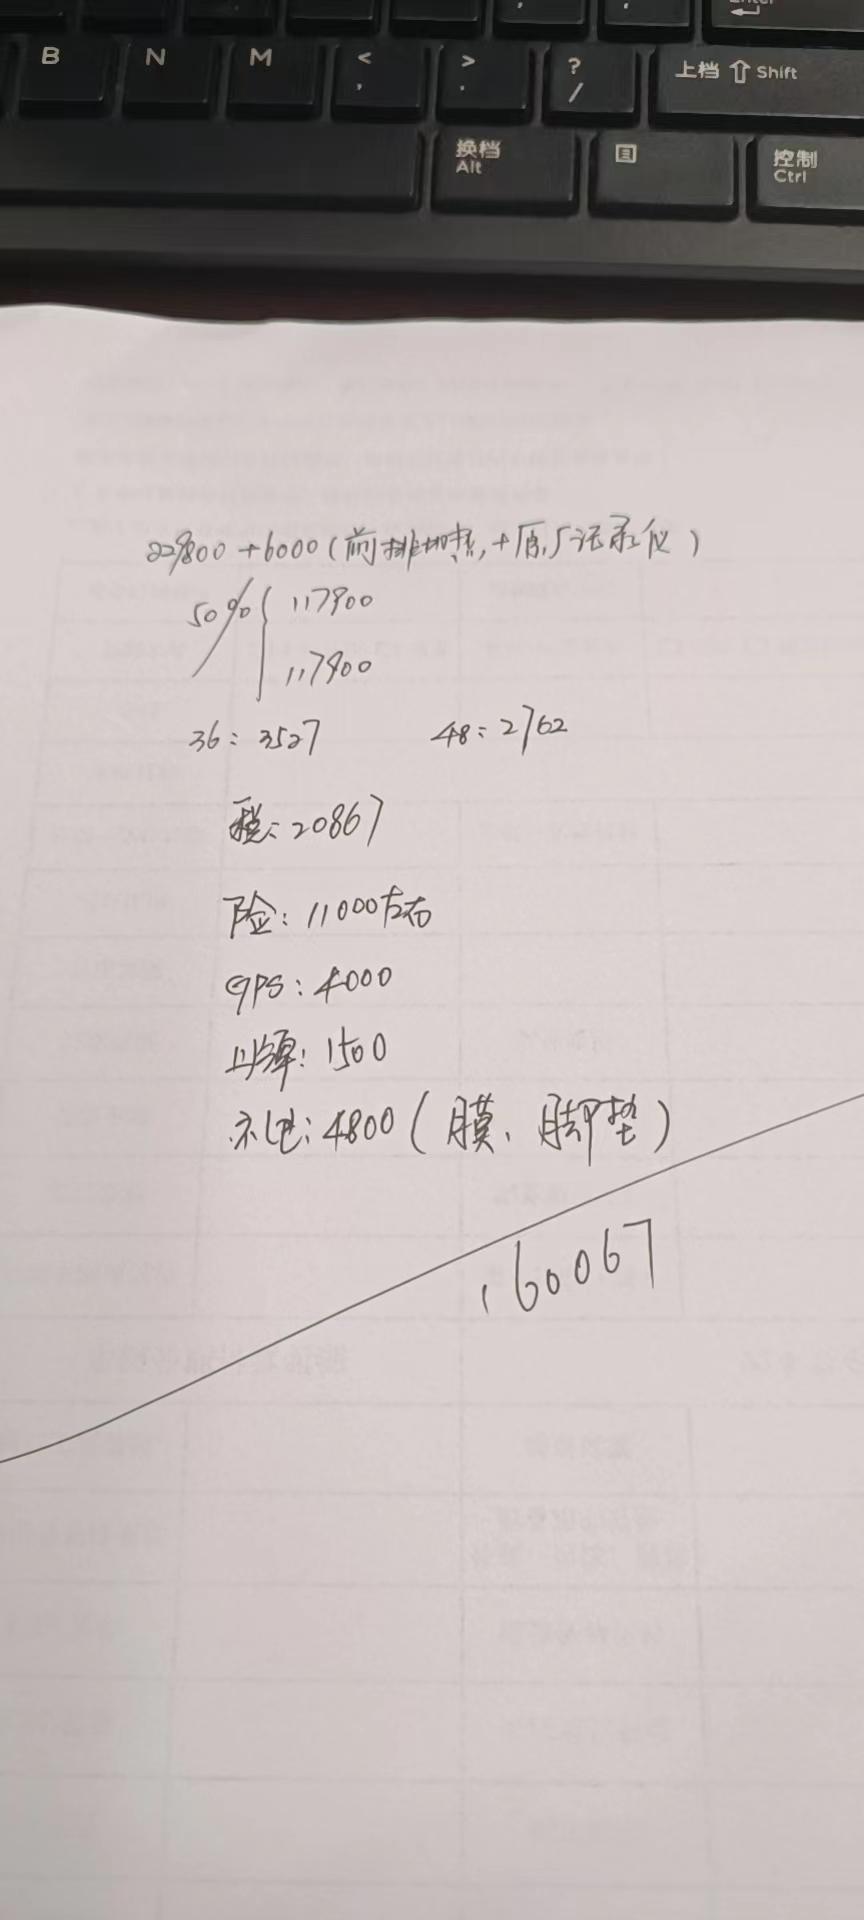 Enter
B N M < , > . ? / 上档 Shift
换档 Alt 控制 Ctrl
229800+6000(前排加热,+原厂记录仪)
50% 117900
117900
36:3527 48:2762
税:20867
险:11000左右
GPS:4000
上牌:1500
礼包:4800(膜、脚垫)
160067